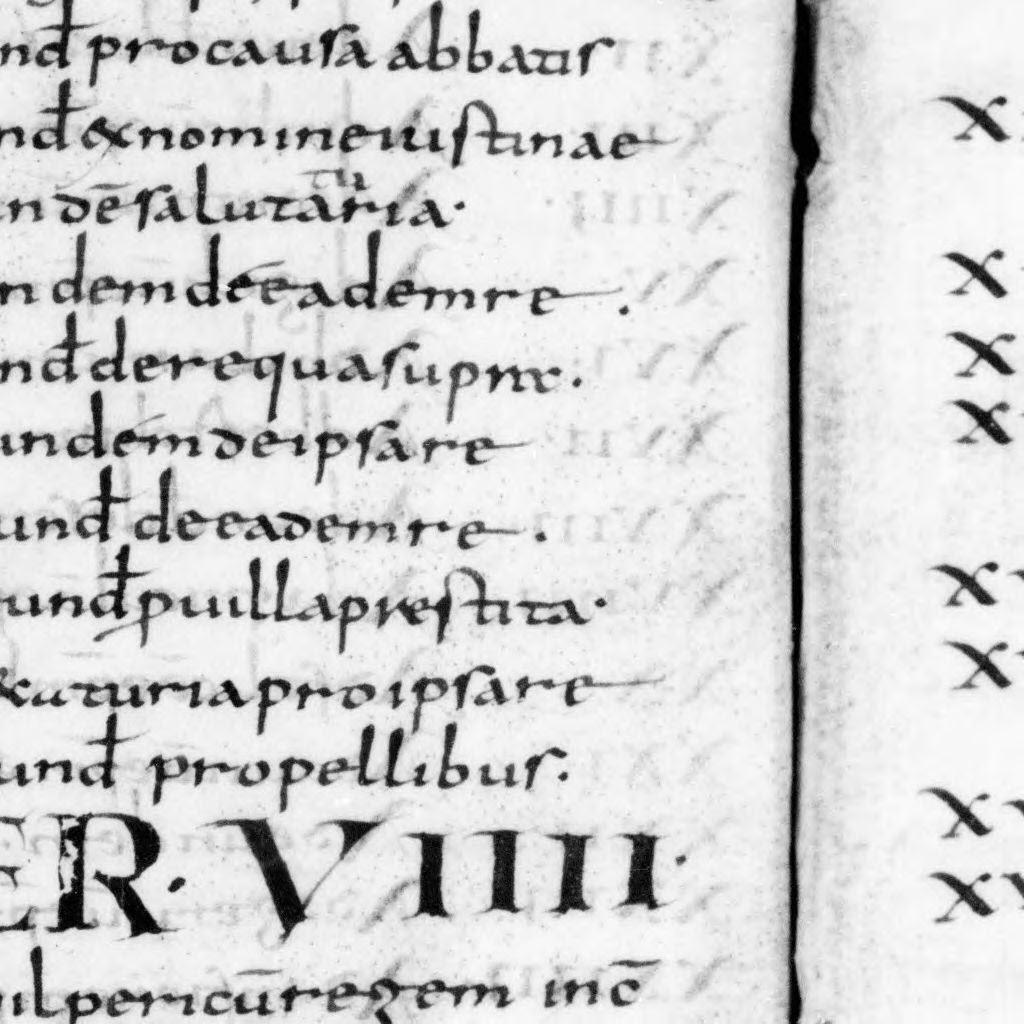 nd̄ procausa abbatis
nd̄ & nomine iustinae
n dē salutaria· tu
ndem de eadem re .
nd̄ de re qua supra.
undem de ipsa re
und̄ de eadem re .
und̄ p uilla prestita·
pro ipsa re
und̄ propellibus.
ER· VIIII·
regem inc̄
X
X
X
X
X
X
X
X